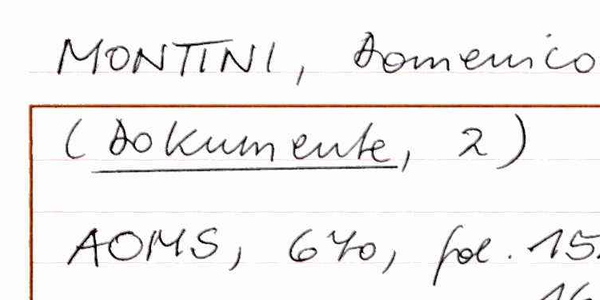 MONTINI, Domenico
(Dokumente, 2)
AOMS, 670, fol. 15
16